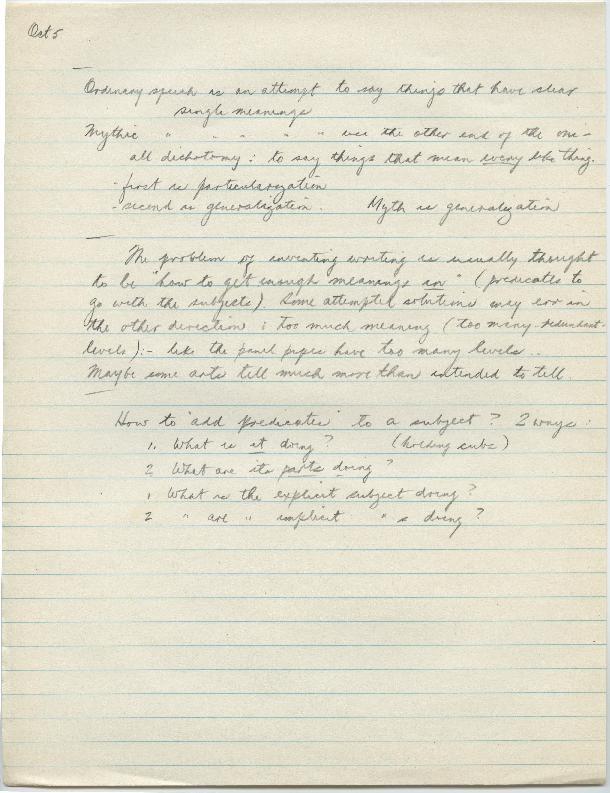 Oct 5
Ordinary speech is an attempt to say things that have clear
single meanings
Mythic " " " " " use the other end of the one-
all dichotomy : to say things that mean every like thing.
- first is particularization
- second is generalization. Myth is generalization
The problem of inventing writing is usually thought
to be "how to get enough meanings in" (predicates to
go with the subjects) Some attempted solutions may err in
the other direction : too much meaning (too many redundant
levels) :- like the panel pipes have too many levels..
Maybe some arts tell much more than intended to tell.
How to "add predicates" to a subject? 2 ways :
1. What is it doing? (holding cubs)
2 What are its parts doing?
1 What is the explicit subject doing?
2 " are " implicit " s doing?